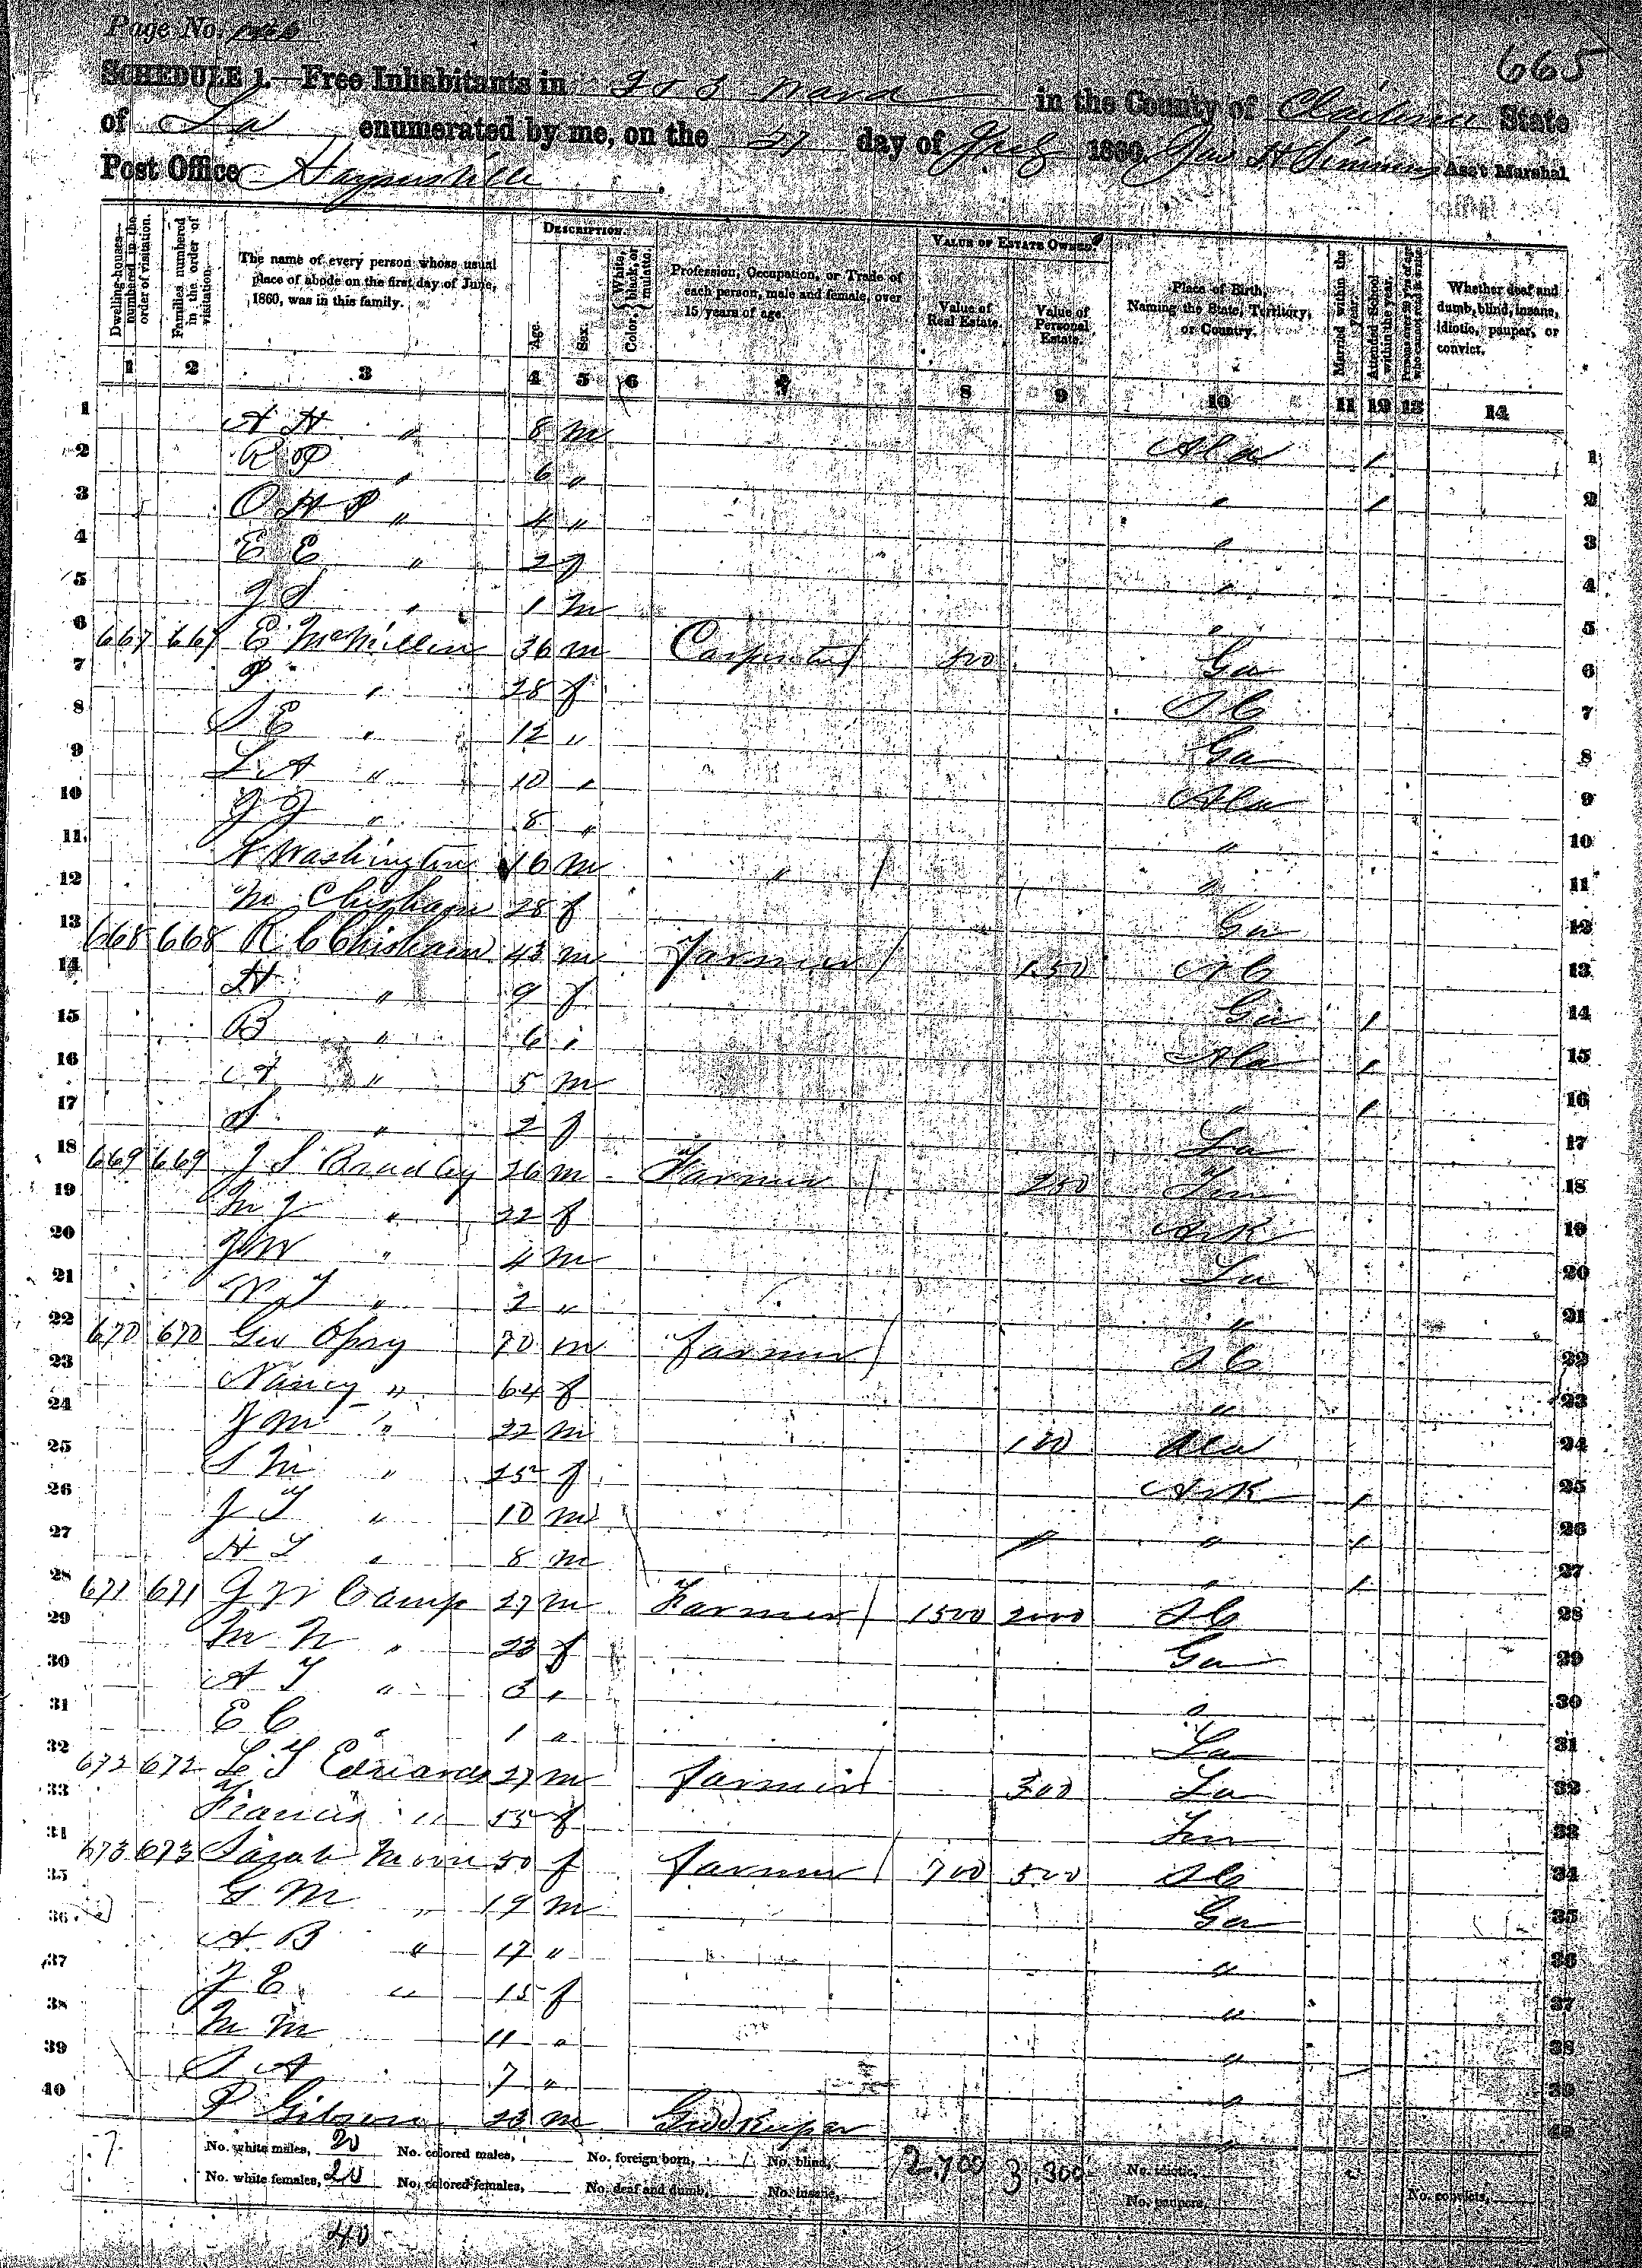 Page No.
665
SCHEDULE 1.—Free Inhabitants in Ward in the County of Claiborne State
of La enumerated by me, on the 27 day of July 1860. Jas H Simmons Ass't Marshal.
Post Office Haynesville
Dwelling-houses—numbered in the order of visitation.
Families numbered in the order of visitation.
The name of every person whose usual place of abode on the first day of June, 1860, was in this family.
DESCRIPTION.
Age.
Sex.
Color, White, black, or mulatto.
Profession, Occupation, or Trade of each person, male and female, over 15 years of age.
VALUE OF ESTATE OWNED.
Value of Real Estate.
Value of Personal Estate.
Place of Birth, Naming the State, Territory, or Country.
Married within the year.
Attended School within the year.
Persons over 20 y'rs of age who cannot read & write.
Whether deaf and dumb, blind, insane, idiotic, pauper, or convict.
1 2 3 4 5 6 7 8 9 10 11 12 13 14
1 A H " 8 m Ala / 1
2 R P " 6 " " / 2
3 O H P " 4 " " 3
4 E E " 2 f " 4
5 J S " 1 m " 5
6 667 667 E McMillen 36 m Carpenter 500 Ga 6
7 P " 28 f S C 7
8 S E " 12 " Ga 8
9 L A " 10 " Ala 9
10 J J " 8 " " 10
11 Washington 16 m " " 11
12 M Chisham 28 f Ga 12
13 668 668 R C Chisham 43 m Farmer 150 13
14 H " 9 f Ga / 14
15 B " 6 " Ala / 15
16 A " 5 m " / 16
17 S " 2 f La 17
18 669 669 J S Bradley 26 m Farmer 250 Ten 18
19 M J " 22 f Ark 19
20 J W " 4 m La 20
21 W J " 2 " " 21
22 670 670 Geo Opry 70 m Farmer S C 22
23 Nancy " 64 f " 23
24 J M " 22 m 100 Ala 24
25 S M " 15 f Ark / 25
26 J T " 10 m " " / 26
27 H T " 8 m " / 27
28 671 671 J W Camp 27 m Farmer 1500 2000 S C 28
29 M N " 23 f Ga 29
30 A T " 3 " " 30
31 E C " 1 " La 31
32 672 672 L T Edwards 27 m Farmer 300 La 32
33 Francis " 55 f Ten 33
34 673 673 Sarah Moore 50 f Farmer 700 500 S C 34
35 G M " 19 m Ga 35
36 A B " 17 " " 36
37 J E " 15 f " 37
38 M M " 11 " " 38
39 S A " 7 " " 39
40 P Gibson 23 m " 40
No. white males, 20 No. colored males, No. foreign born, No. blind, 2,700 3,300 No. idiotic,
No. white females, 20 No. colored females, No. deaf and dumb, No. insane, No. paupers, No. convicts,
40